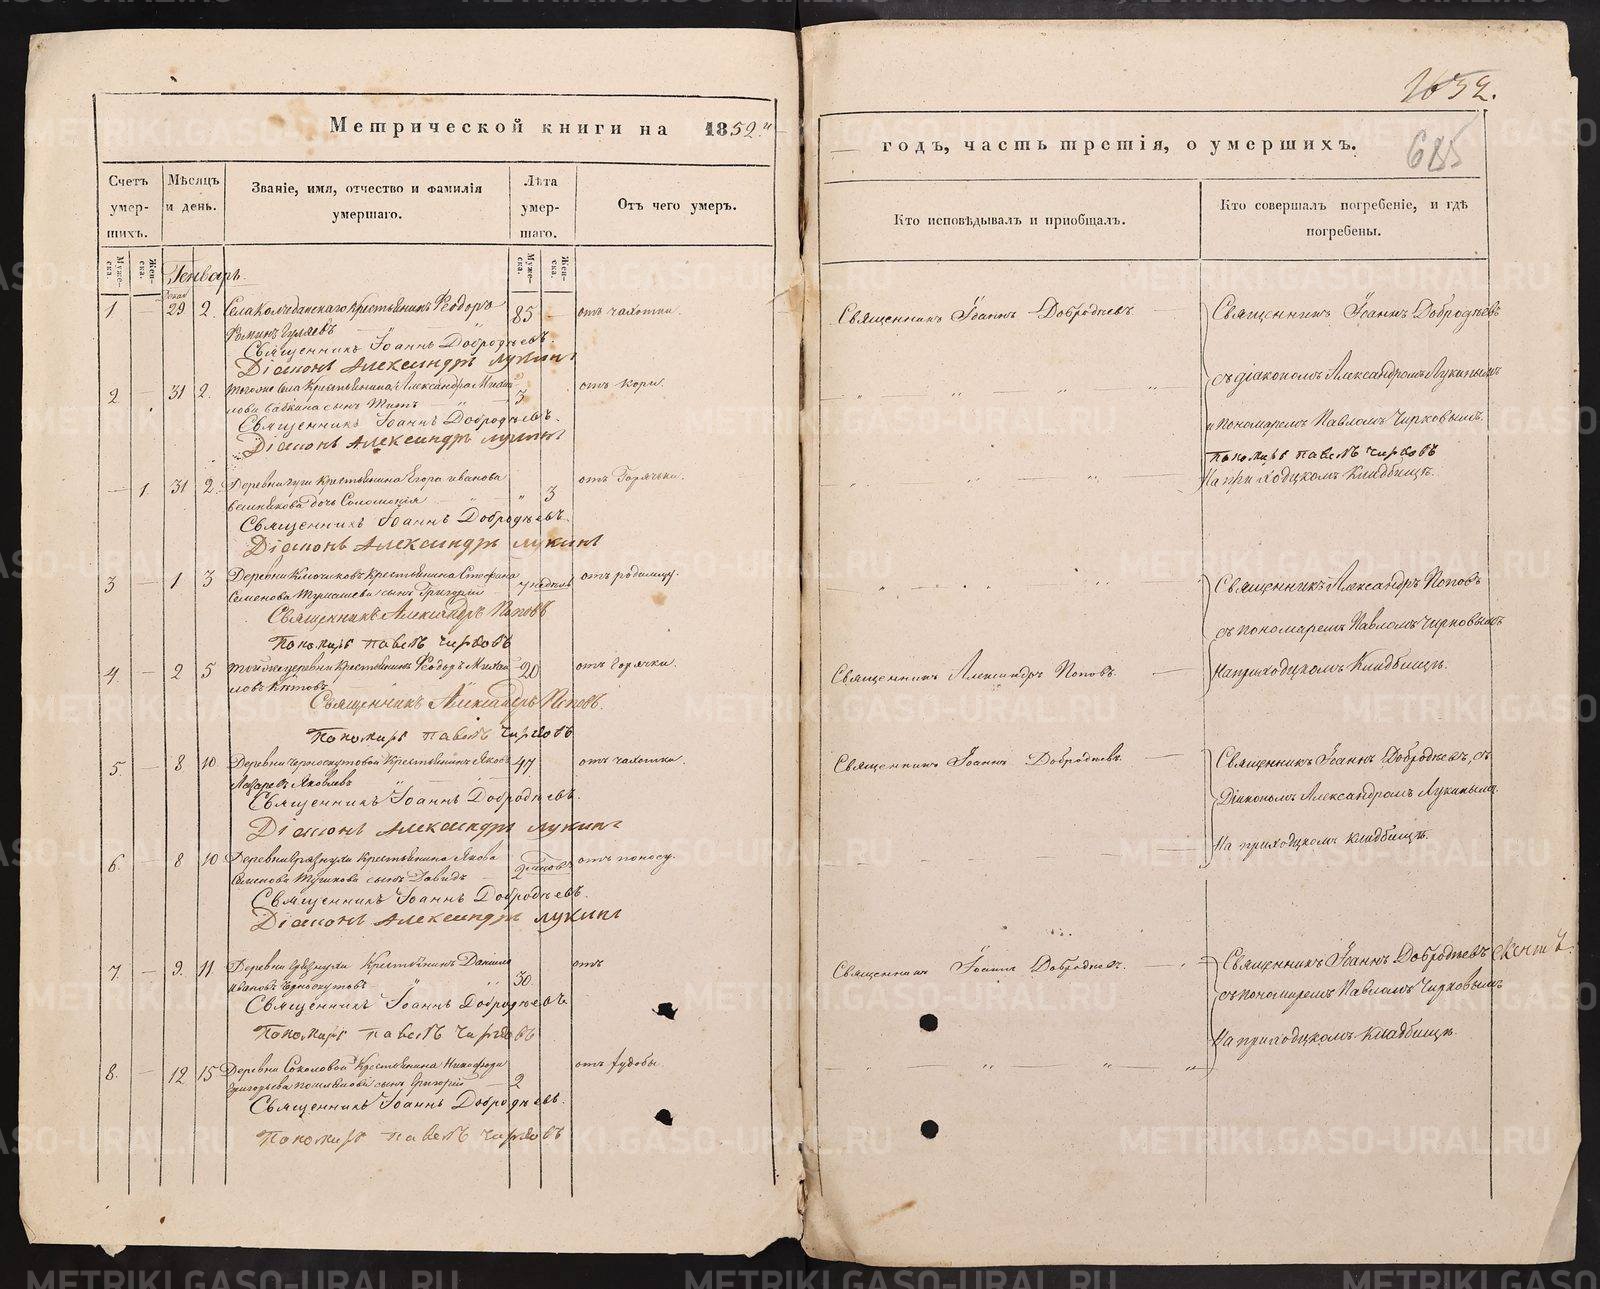 1852.
685
Метрической книги на 1852й
годъ, часть третія, о умершихъ.
Счетъ умер-шихъ.
Мѣсяцъ и день.
Званіе, имя, отчество и фамилія умершаго.
Лѣта умер-шаго.
Отъ чего умеръ.
Кто исповѣдывалъ и пріобщалъ.
Кто совершалъ погребеніе, и гдѣ погребены.
Муже-ска.
Жен-ска.
Муже-ска.
Жен-ска.
Генварь.
1 — 29 2. Села Колчеданскаго Крестьянинъ Ѳеодоръ 85 — отъ чахотки.
Ѳоминъ Гуляевъ
Священникъ Іоаннъ Добродѣевъ.
Діаконъ Александръ Лукинъ
Священникъ Іоаннъ Добродѣевъ
Священникъ Іоаннъ Добродѣевъ
съ діакономъ Александромъ Лукинымъ
и пономаремъ Павломъ Чирковымъ.
пономарь павелъ чирковъ
На приходскомъ Кладбищѣ.
2 — 31 2. Тогоже села Крестьянина Александра Михай- 3 отъ кори.
лова Бабкина сынъ Титъ
Священникъ Іоаннъ Добродѣевъ.
Діаконъ Александръ Лукинъ
— 1. 31 2. Деревни Крестьянина Егора иванова 3 отъ Горячки.
дочь Соломонія
Священникъ Іоаннъ Добродѣевъ
Діаконъ Александръ Лукинъ
3 — 1 3 Деревни Ключиковъ Крестьянина Стефана недѣль отъ родимцу.
Семенова сынъ Григорій
Священникъ Александръ Поповъ
Пономарь павелъ чирковъ
Священникъ Александръ Поповъ
съ пономаремъ Павломъ Чирковымъ
На приходскомъ Кладбищѣ.
4. — 2 5 тойже деревни Крестьянинъ Ѳеодоръ Михай- 20 отъ горячки.
ловъ Кѣтовъ
Священникъ Александръ Поповъ.
Пономарь павелъ чирковъ
Священникъ Александръ Поповъ.
5. — 8 10 Деревни Черноскутовой Крестьянинъ Яковъ 47 отъ чахотки.
Лазаревъ Яковлевъ
Священникъ Іоаннъ Добродѣевъ.
Діаконъ Александръ Лукинъ
Священникъ Іоаннъ Добродѣевъ.
Священникъ Іоаннъ Добродѣевъ, съ
Діакономъ Александромъ Лукинымъ.
На приходскомъ кладбищѣ.
6. — 8 10 Деревни Крестьянина Якова отъ поносу.
Семенова сынъ Давидъ
Священникъ Іоаннъ Добродѣевъ.
Діаконъ Александръ Лукинъ
7. — 9. 11. Деревни Крестьянинъ Даниилъ 30. отъ
ивановъ Черноскутовъ
Священникъ Іоаннъ Добродѣевъ
Пономарь павелъ чирковъ
Священникъ Іоаннъ Добродѣевъ.
Священникъ Іоаннъ Добродѣевъ
съ пономаремъ Павломъ Чирковымъ
На приходскомъ Кладбищѣ.
8. — 12 15 Деревни Соколовой Крестьянина Никифора 2 отъ худобы
Григорьева сынъ Григорій
Священникъ Іоаннъ Добродѣевъ.
Пономарь павелъ чирковъ
METRIKI.GASO-URAL.RU